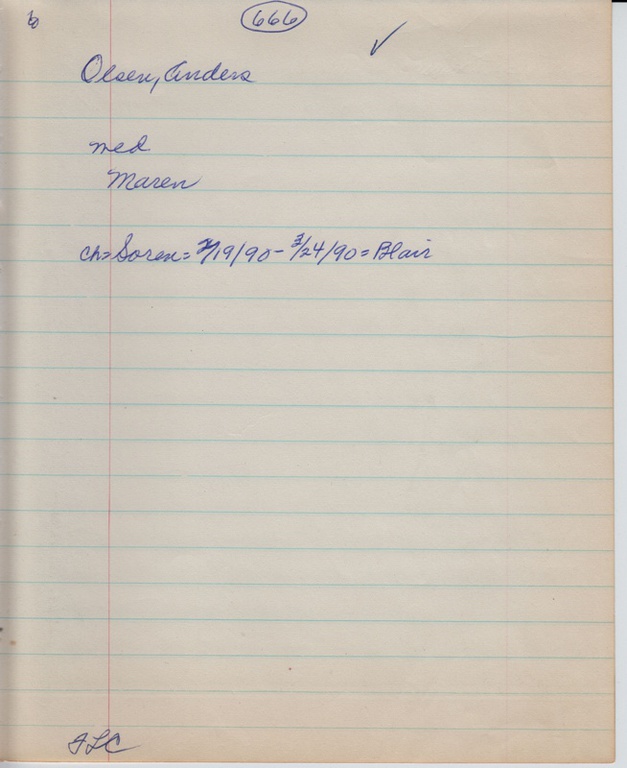 666
Olsen, Anders
med
Maren
ch= Soren = 2/19/90 - 3/24/90 = Blair
FLC